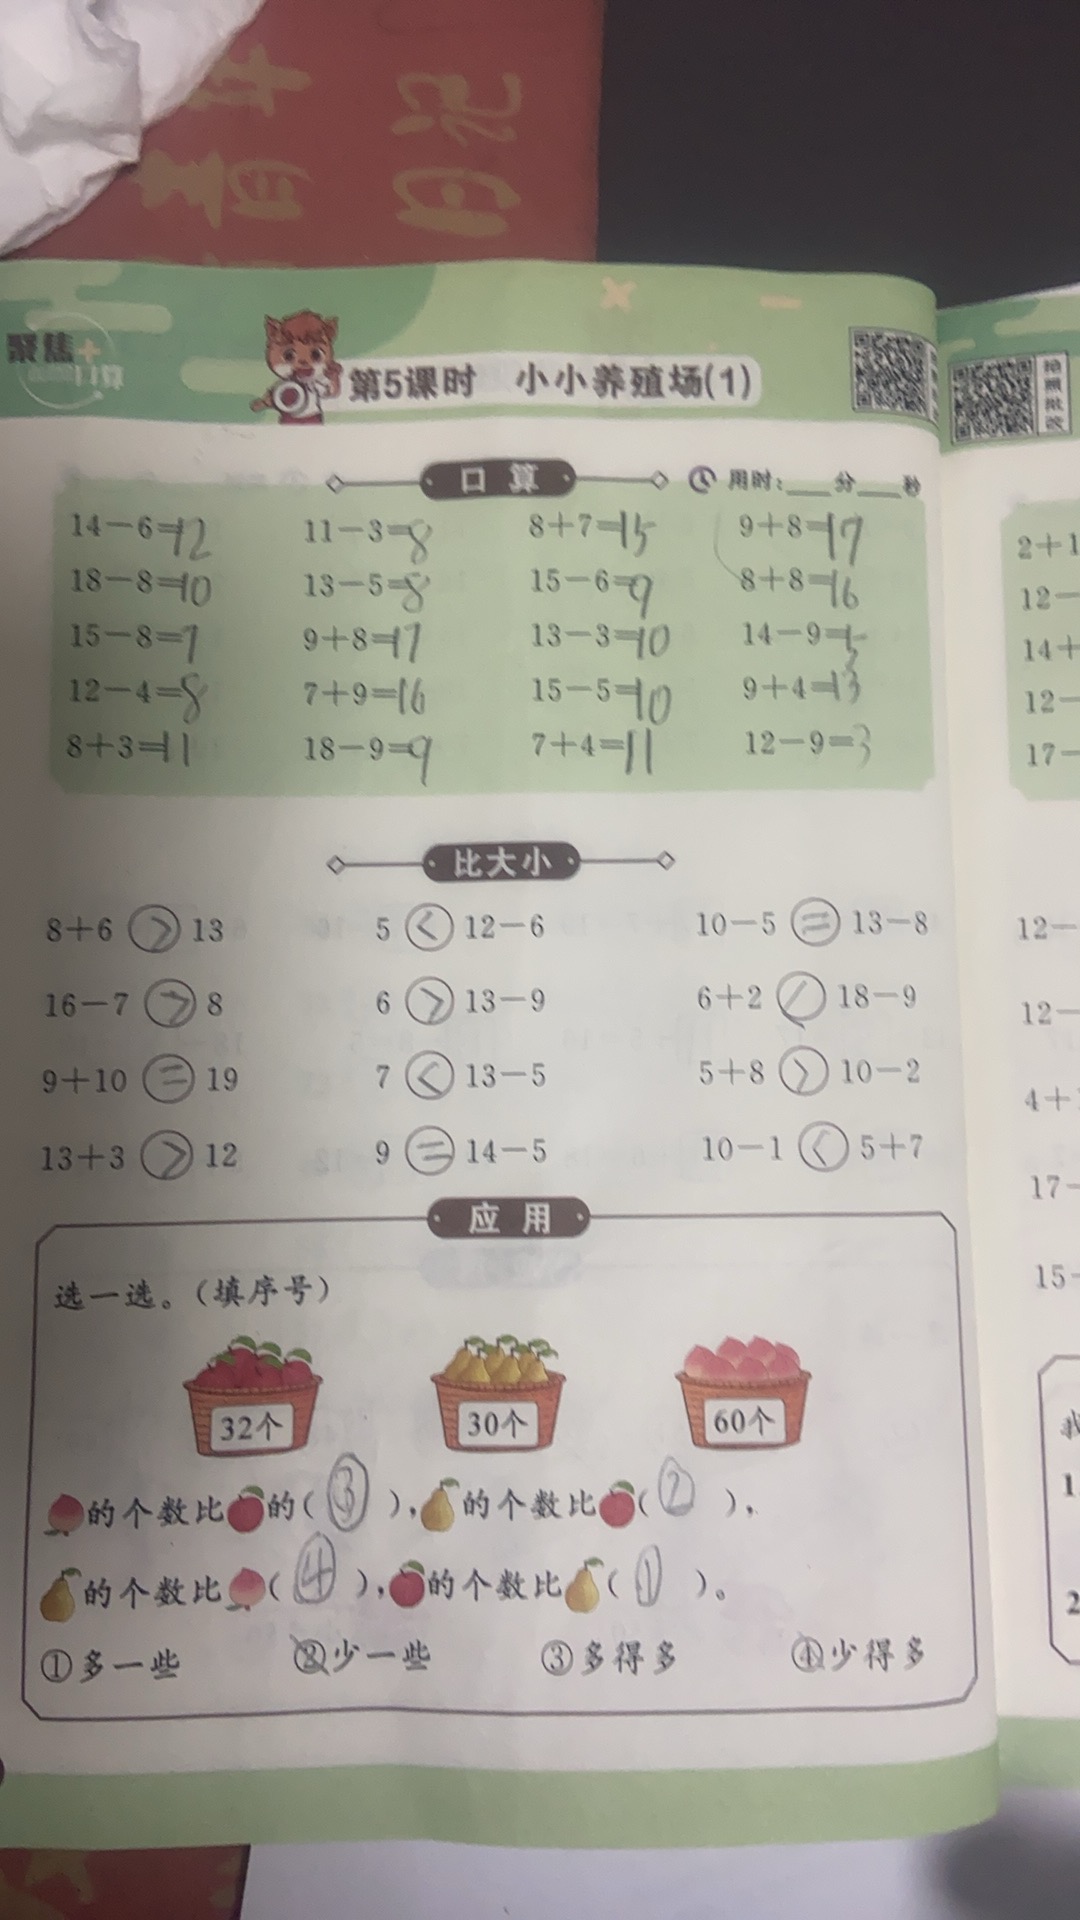 聚焦+
口算
第5课时 小小养殖场(1)
拍照批改
口算
用时:___分___秒
14-6=12 11-3=8 8+7=15 9+8=17
18-8=10 13-5=8 15-6=9 8+8=16
15-8=7 9+8=17 13-3=10 14-9=5
12-4=8 7+9=16 15-5=10 9+4=13
8+3=11 18-9=9 7+4=11 12-9=3
比大小
8+6 > 13 5 < 12-6 10-5 = 13-8
16-7 > 8 6 > 13-9 6+2 18-9
9+10 = 19 7 < 13-5 5+8 > 10-2
13+3 > 12 9 = 14-5 10-1 < 5+7
应用
选一选。(填序号)
32个 30个 60个
的个数比的(③),的个数比(②),
的个数比(④),的个数比(①)。
①多一些 ②少一些 ③多得多 ④少得多
2+1
12-
14+
12-
17-
12-
12-
4+
17-
15-
我
1.
2